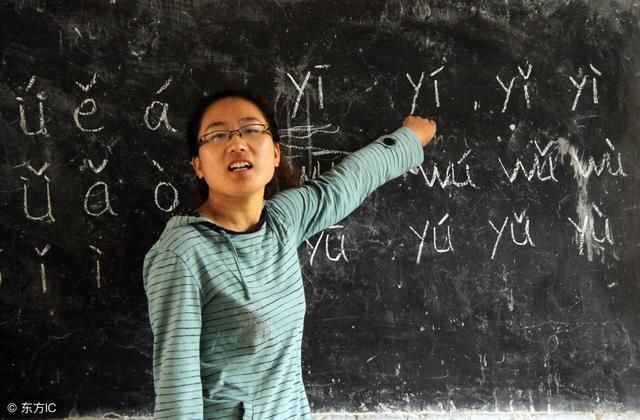 ǘ ě á yī yí yǐ yì
ǚ ǎ ò wú wǔ wù
ǐ ì yū yú yǔ yù
© 东方IC